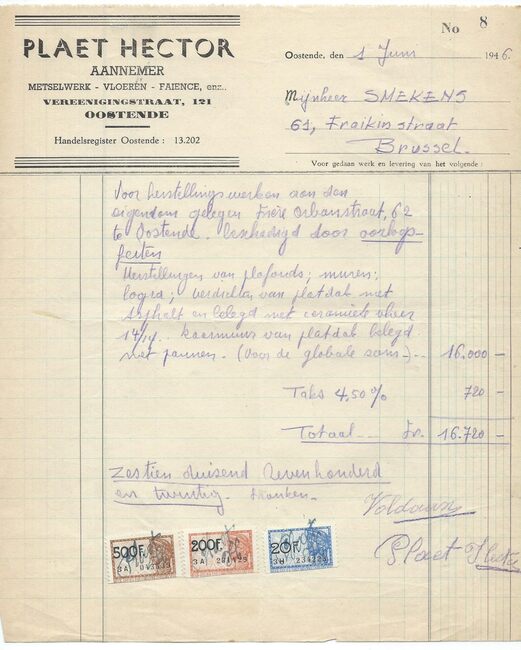 No 8
PLAET HECTOR
AANNEMER
METSELWERK - VLOEREN - FAIENCE, enz..
VEREENIGINGSTRAAT, 121
OOSTENDE
Handelsregister Oostende : 13.202
Oostende, den 1 Juni 1946.
Mijnheer SMEKENS
61, Fraikinstraat
Brussel.
Voor gedaan werk en levering van het volgende :
Voor herstellingswerken aan den
eigendom gelegen Frère Orbanstraat, 62
te Oostende. beschadigd door oorlogs-
feiten
Herstellingen van plafonds; muren;
logia; verdichten van platdak met
asphalt en belegd met ceramiek vloer
14/14. kaarmuur van platdak belegd
met pannen. (Voor de globale som) - 16.000 -
Taks 4,50 % 720 -
Totaal -- Fr. 16.720 -
Zestien duizend Zevenhonderd
en twintig. Franken.
Voldaan
Plaet Hector
500F.
200F.
20F.